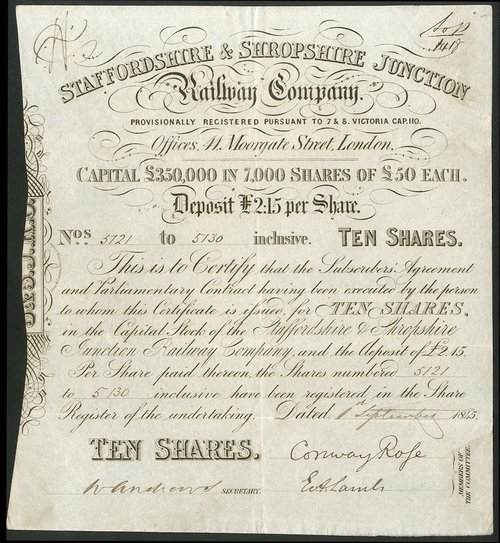 STAFFORDSHIRE & SHROPSHIRE JUNCTION
Railway Company.
PROVISIONALLY REGISTERED PURSUANT TO 7 & 8. VICTORIA CAP. 110.
Offices, 41, Moorgate Street, London.
CAPITAL £350,000 IN 7,000 SHARES OF £50 EACH.
Deposit £2.15 per Share.
Nos 5121 to 5130 inclusive. TEN SHARES.
This is to Certify that the Subscribers' Agreement
and Parliamentary Contract having been executed by the person
to whom this Certificate is issued, for TEN SHARES,
in the Capital Stock of the Staffordshire & Shropshire
Junction Railway Company, and the deposit of £2.15.
Per Share paid thereon, the Shares numbered 5121
to 5130 inclusive have been registered in the Share
Register of the undertaking. Dated September 1845.
TEN SHARES.
Conway Rose
W Andrews SECRETARY.
E A Lamb
MEMBERS OF
THE COMMITTEE.